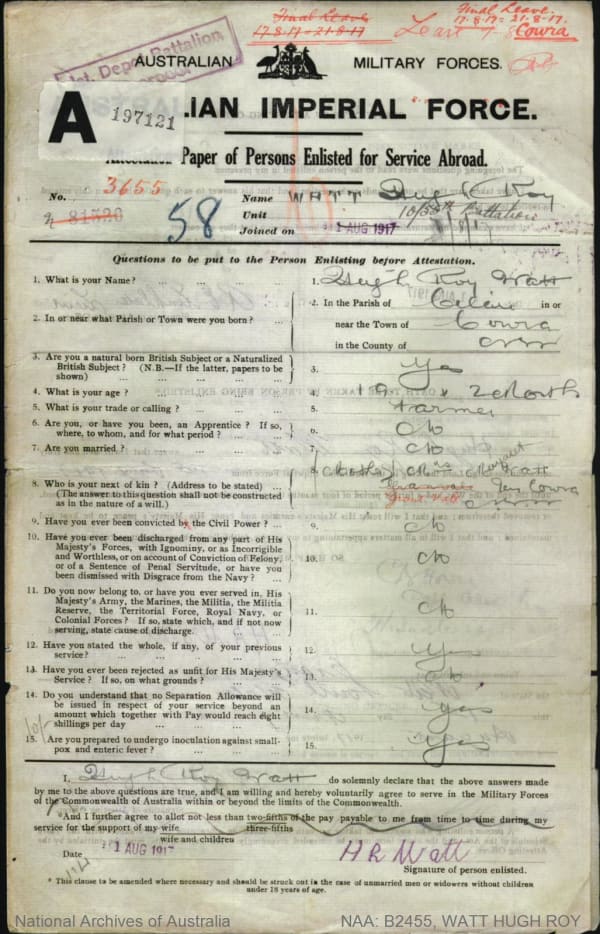 Final Leave
17-8-17 - 21-8-17
Final Leave.
17.8.17 - 21-8-17.
Cowra
1st. Depot Battalion
AUSTRALIAN MILITARY FORCES.
A 197121
LIAN IMPERIAL FORCE.
Attestation Paper of Persons Enlisted for Service Abroad.
No. 3655
81520
58
Name WATT Hugh Roy
Unit 10/55th Battalion
Joined on 1 AUG 1917
Questions to be put to the Person Enlisting before Attestation.
1. What is your Name? ... ... ... 1. Hugh Roy Watt
2. In or near what Parish or Town were you born? ... 2. In the Parish of in or
near the Town of Cowra
in the County of NSW
3. Are you a natural born British Subject or a Naturalized
British Subject? (N.B.—If the latter, papers to be
shown) ... ... ... 3. Yes
4. What is your age? ... ... ... 4. 19 2 months
5. What is your trade or calling? ... ... 5. Farmer
6. Are you, or have you been, an Apprentice? If so,
where, to whom, and for what period? ... ... 6. No
7. Are you married? ... ... ... 7. No
8. Who is your next of kin? (Address to be stated) ...
(The answer to this question shall not be constructed
as in the nature of a will.)
8. (Mother) Mrs Margaret Watt
Cowra
NSW
9. Have you ever been convicted by the Civil Power? ... 9. No
10. Have you ever been discharged from any part of His
Majesty's Forces, with Ignominy, or as Incorrigible
and Worthless, or on account of Conviction of Felony,
or of a Sentence of Penal Servitude, or have you
been dismissed with Disgrace from the Navy? ... 10. No
11. Do you now belong to, or have you ever served in, His
Majesty's Army, the Marines, the Militia, the Militia
Reserve, the Territorial Force, Royal Navy, or
Colonial Forces? If so, state which, and if not now
serving, state cause of discharge. 11. No
12. Have you stated the whole, if any, of your previous
service? ... ... ... 12. Yes
13. Have you ever been rejected as unfit for His Majesty's
Service? If so, on what grounds? ... ... 13. No
14. Do you understand no Separation Allowance will
be issued in respect of your service beyond an
amount which together with Pay would reach eight
shillings per day ... ... ... 14. Yes
15. Are you prepared to undergo inoculation against small-
pox and enteric fever? ... ... ... 15. Yes
I, Hugh Roy Watt do solemnly declare that the above answers made
by me to the above questions are true, and I am willing and hereby voluntarily agree to serve in the Military Forces
of the Commonwealth of Australia within or beyond the limits of the Commonwealth.
*And I further agree to allot not less than two-fifths of the pay payable to me from time to time during my
three-fifths
service for the support of my wife
wife and children
Date 1 AUG 1917
H R Watt
Signature of person enlisted.
* This clause to be amended where necessary and should be struck out in the case of unmarried men or widowers without children
under 18 years of age.
National Archives of Australia NAA: B2455, WATT HUGH ROY